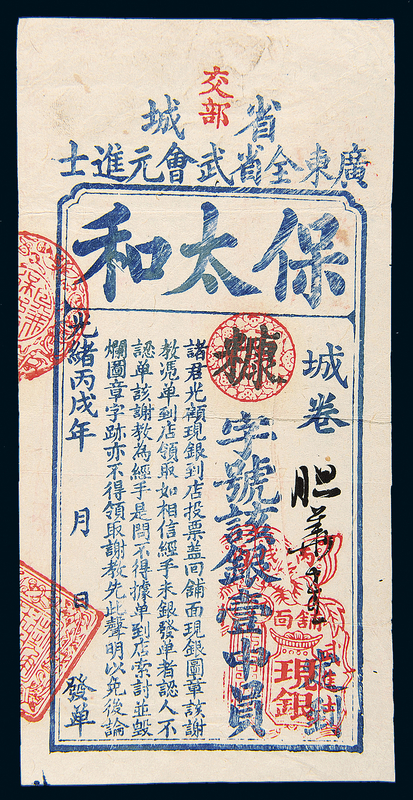 交部
省城
廣東全省武會元進士
保太和
城卷
胆
糠字號該銀壹中員
舖面
現銀
諸君光顧現銀到店投票盖囘舖面現銀圖章該謝
教馮單到店領取如相信經手未銀發單者認人不
認單該謝教為經手是問不得據單到店索討並毀
爛圖章字跡亦不得領取謝教先此聲明以免後論
光緒丙戌年 月 日 發單